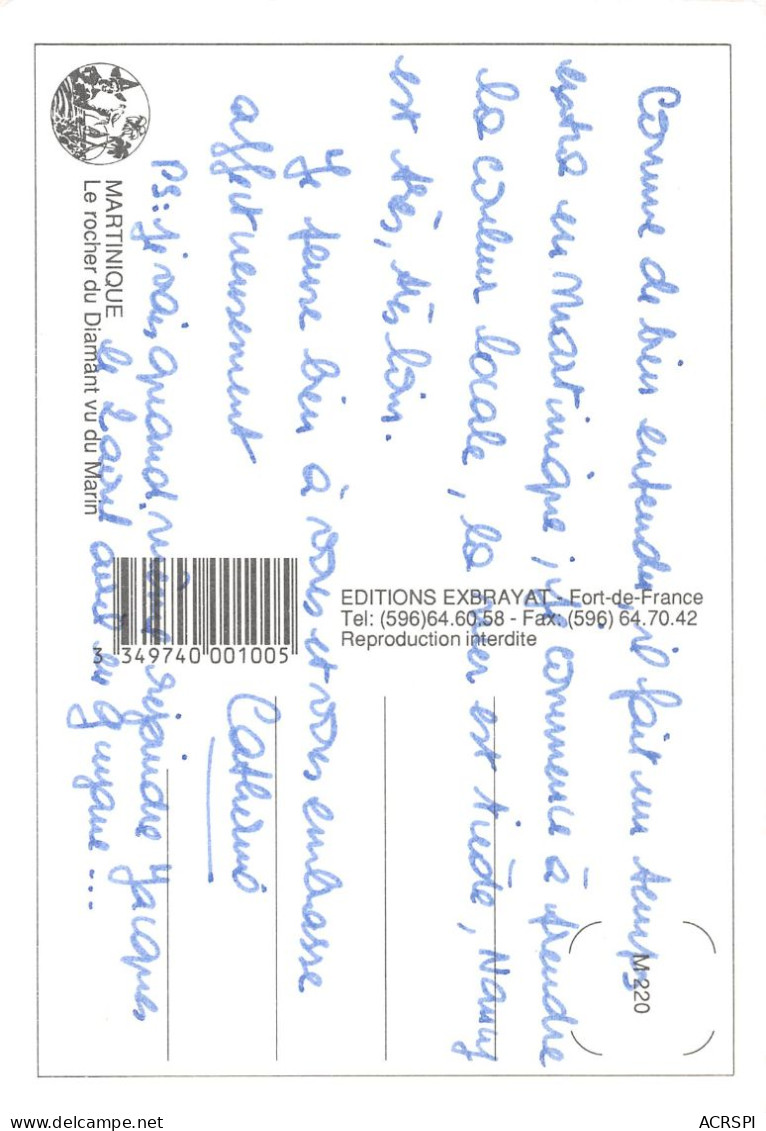 Comme de bien entendu, il fait un temps
extra en Martinique ; je commence à prendre
la couleur locale, la mer est tiède, Nancy
est très, très loin.
Je pense bien à vous et vous embrasse
affectueusement
Catherine
PS: je vais quand même rejoindre Jacques
le 2 avril en guyane...
MARTINIQUE
Le rocher du Diamant vu du Marin
3 349740 001005
EDITIONS EXBRAYAT - Fort-de-France
Tel: (596)64.60.58 - Fax: (596) 64.70.42
Reproduction interdite
M 220
ACRSPI